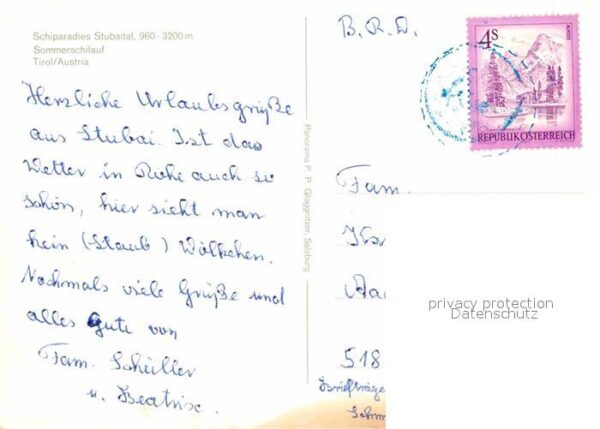 Schiparadies Stubaital, 960 - 3200 m
Sommerschilauf
Tirol/Austria
Herzliche Urlaubsgrüße
aus Stubai. Ist das
Wetter in Ruhe auch so
schön, hier sieht man
kein (Staub) Wölkchen.
Nochmals viele Grüße und
alles Gute von
Fam. Schüller
u. Beatrix.
Panorama P. P. Gloggnitzer, Salzburg
B. R. D.
4S
REPUBLIK ÖSTERREICH
Fam.
518
Briefträge
privacy protection
Datenschutz